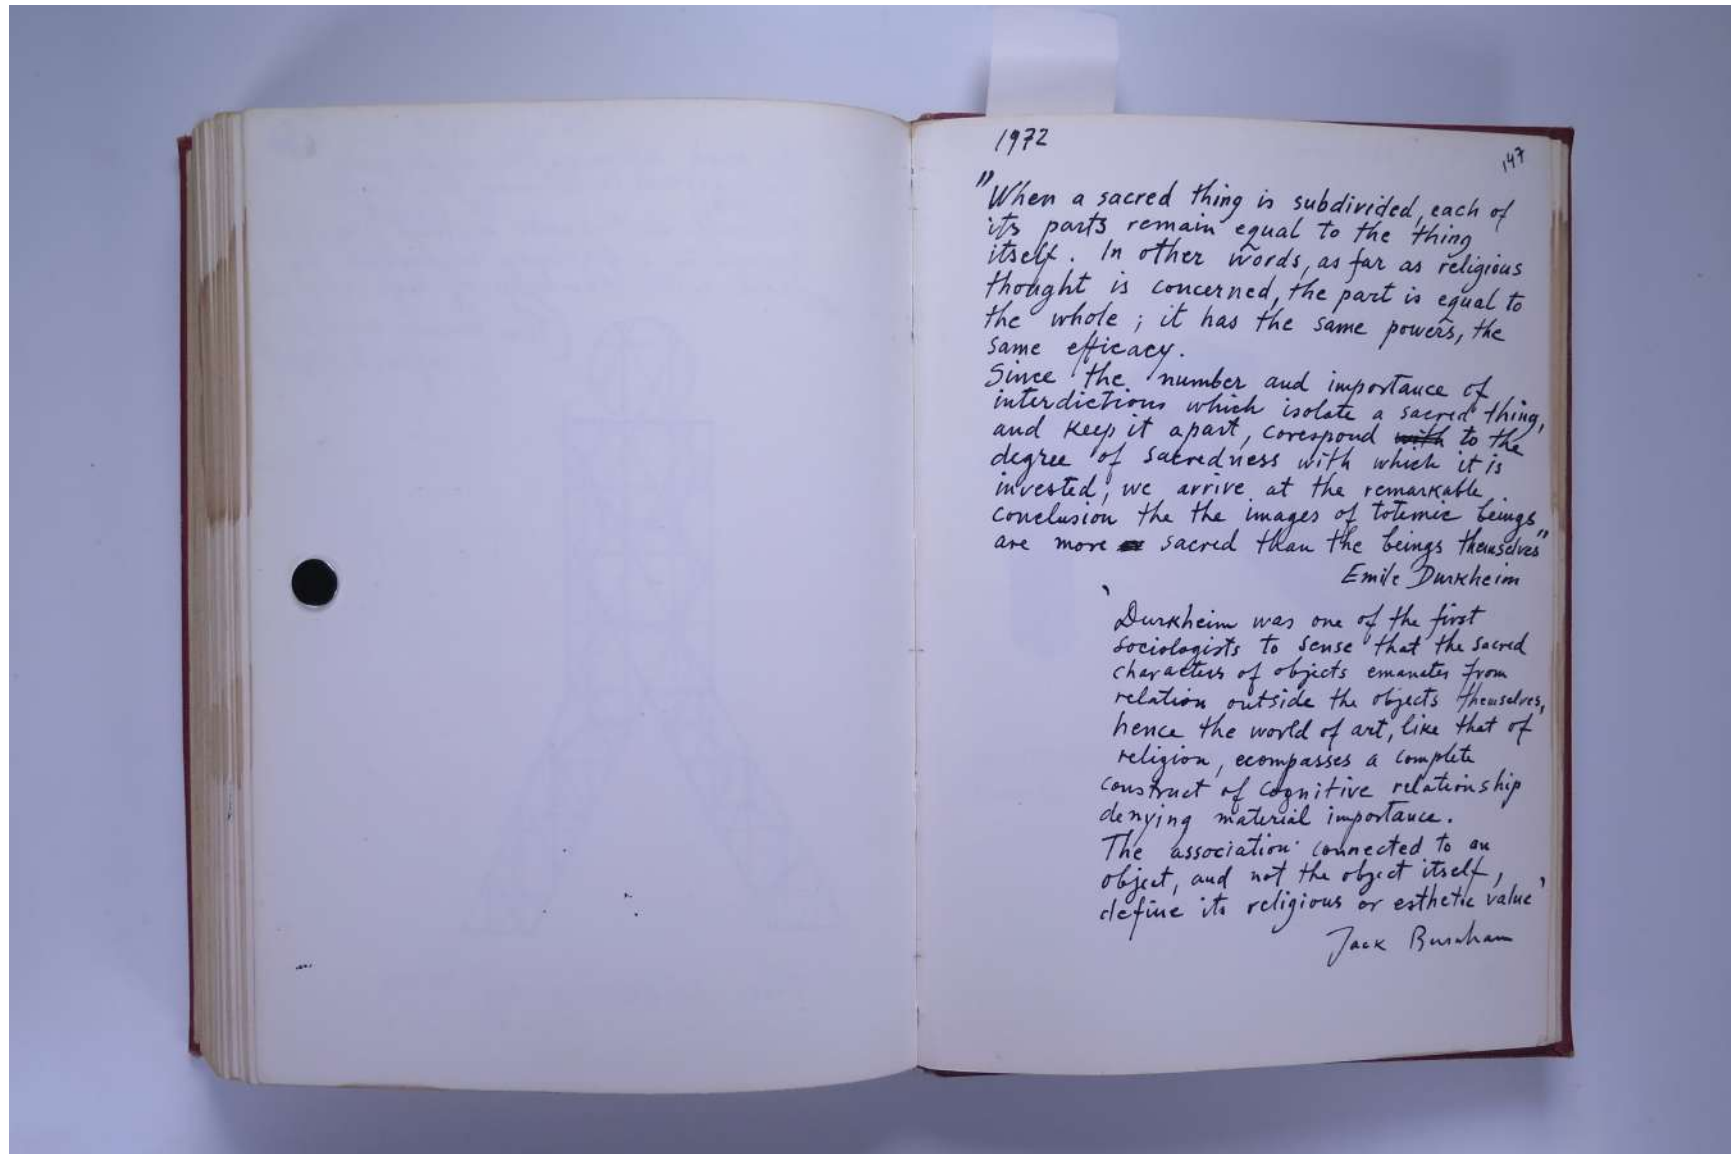 1972
147
"When a sacred thing is subdivided, each of
its parts remain equal to the thing
itself. In other words, as far as religious
thought is concerned, the part is equal to
the whole; it has the same powers, the
same efficacy.
Since the number and importance of
interdictions which isolate a sacred thing,
and keep it apart, corespond with to the
degree of sacredness with which it is
invested, we arrive at the remarkable
conclusion the the images of totemic beings
are more sacred than the beings themselves"
Emile Durkheim
'Durkheim was one of the first
sociologists to sense that the sacred
characters of objects emanates from
relation outside the objects themselves,
hence the world of art, like that of
religion, ecompasses a complete
construct of cognitive relationship
denying material importance.
The association connected to an
object, and not the object itself,
define its religious or esthetic value'
Jack Burnham